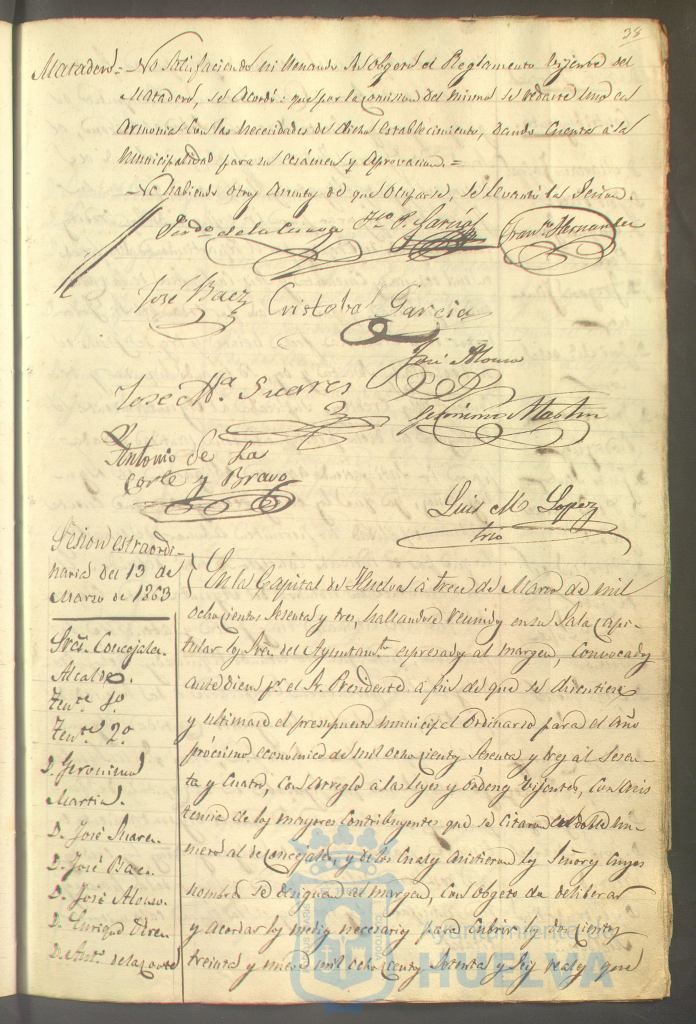 38
Matadero = No satisfaciendo ni llenando el obgeto el Reglamento vijente del
Matadero, se acordó: que por la comision del mismo se redacte uno en
armonia con las necesidades de dicho establecimiento, dando cuenta á la
Municipalidad para su ecsámen y aprovacion. =
No habiendo otros asuntos de que ocuparse, se levantó la sesion.
Fran.co Hernandez
José Baez Cristobal Garcia
José Alonso
José M.ª Suares
Geronimo Martin
Antonio de la
Corte y Bravo
Luis M Lopez
trio
Sesion estraordi-
naria del 13 de
Marzo de 1863
Sres. Concejales.
Alcalde.
Tente. 1º.
Tente. 2º.
D. Geronimo
Martin.
D. José Suares.
D. José Baez.
D. José Alonso.
D. Enrique
D. Ant.º de la Corte
En la Capital de Huelva á trece de Marzo de mil
ochocientos sesenta y tres, hallandose reunidos en su Sala capi-
tular los Sres. del Ayuntam.to espresados al margen, convocados
antediem pr. el Sr. Presidente á fin de que se discutiese
y ultimase el presupuesto municipal ordinario para el año
prócsimo económico de mil ochocientos sesenta y tres al sesen-
ta y cuatro, con arreglo á las leyes y órdenes vijentes, con asis
tencia de los mayores contribuyentes que se citaron en doble nu-
mero al de concejales, y de los cuales asistieron los Señores cuyos
nombres se designan al margen, con obgeto de deliberar
y acordar los medios necesarios para cubrir los doscientos
treinta y nueve mil ochocientos setenta y seis reales que
Ayuntamiento de
HUELVA